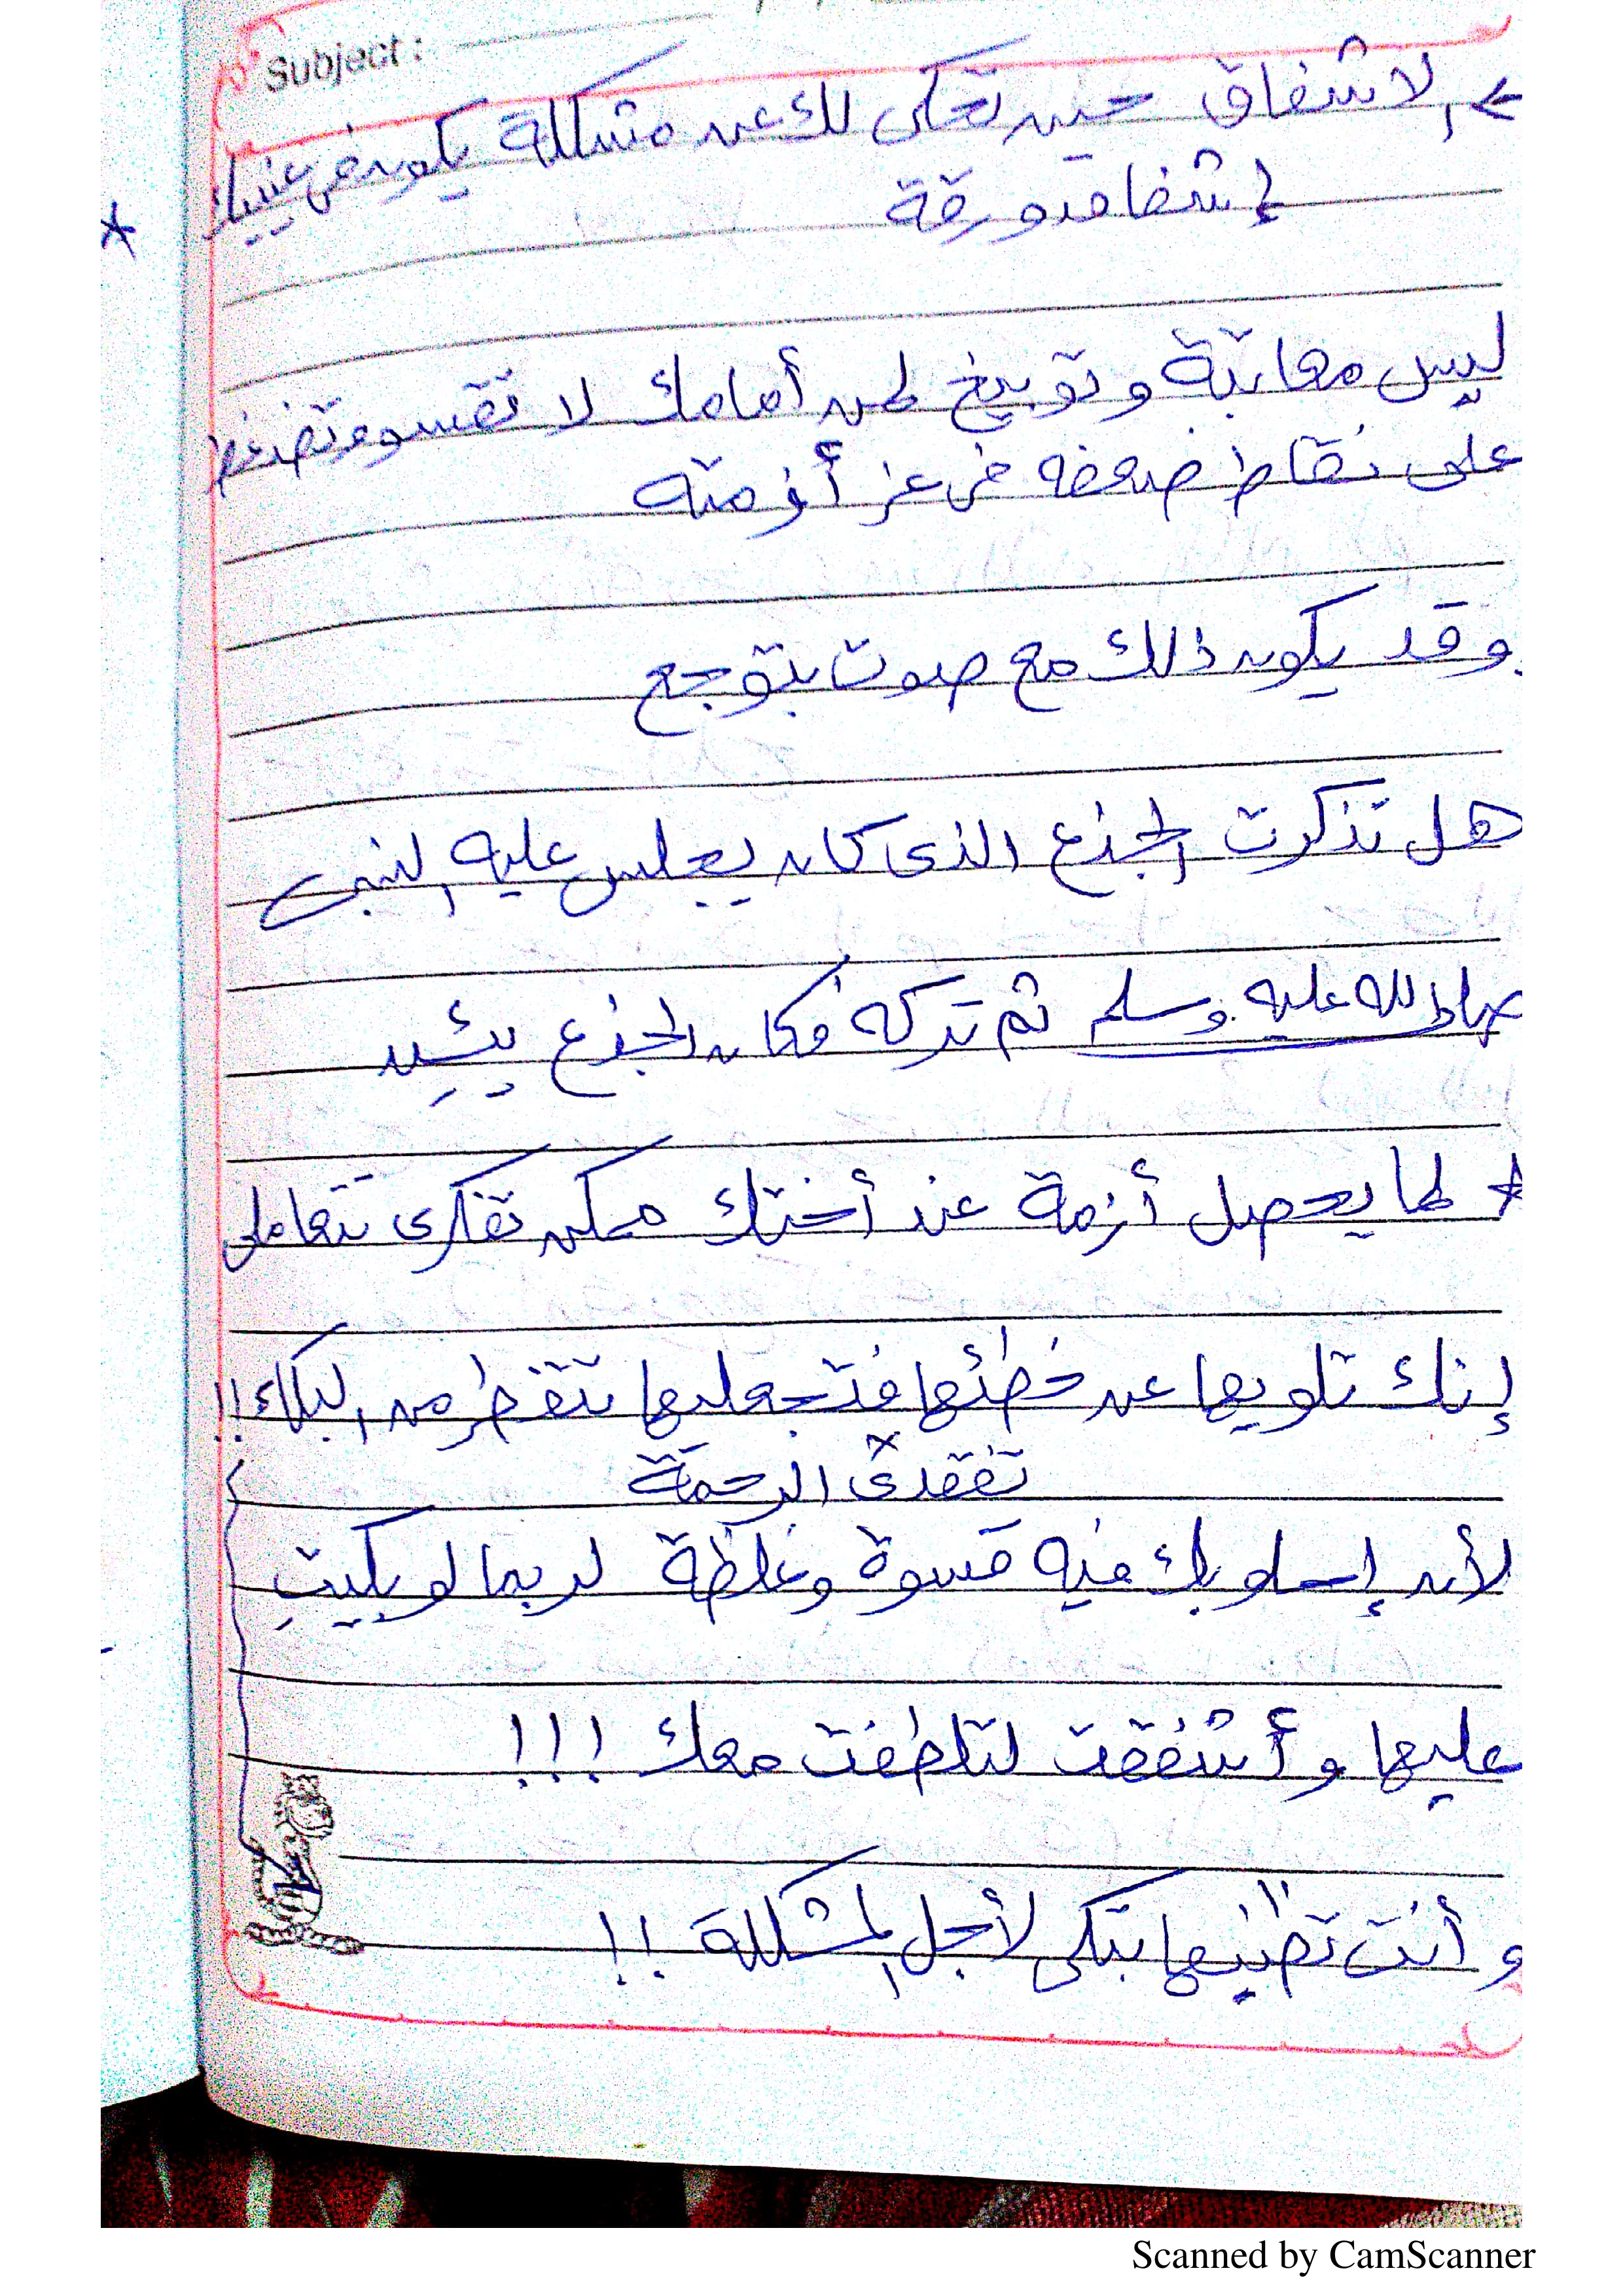 Subject :
← الاشفاق حين تحكى لك عن مشكلة يكون فى عينيك
إشفاق ورقة
*
ليس معاتبة وتوبيخ لمن أمامك لا تقسو وتضغط
على نقاط ضعفه فى عز أزمته
وقد يكون ذلك مع صوت بتوجع
هل تذكرت الجذع الذى كان يجلس عليه النبى
صلى الله عليه وسلم ثم تركه فكان الجذع يئِن
* لما يحصل أزمة عند أختك ممكن تفكرى تتعاملى
إنك تلويها عن خطئها فتجعليها تتفطر من البكاء !!
تفقدى الرحمة
لأن إسلوبك فيه قسوة وغلظة لربما لو بكيتِ
عليها وأشفقت لتلطفت معك !!!
وأنت تظنيها بتبكى لأجل المشكلة !!
Scanned by CamScanner